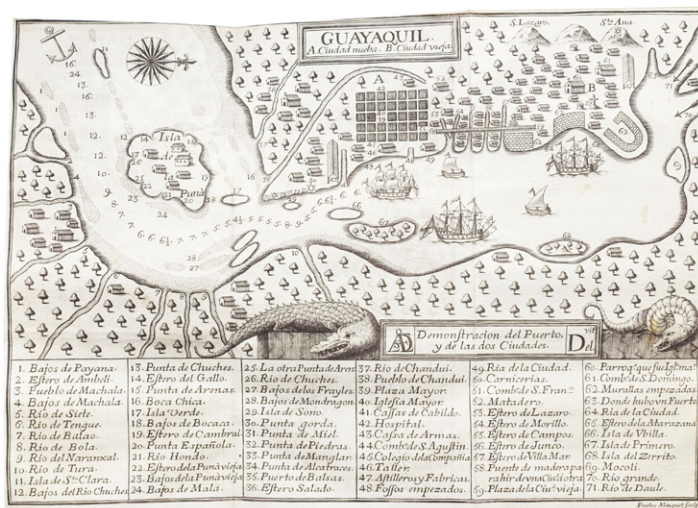 GUAYAQUIL.
A. Ciudad nueba. B. Ciudad vieja
S. Lazaro.
Sta Ana.
A
B
Isla
de
la
Puná
Demonstracion del Puerto,
y de las dos Ciudades.
Delvit
1. Bajos de Payana.
2. Estero de Ambeli.
3. Pueblo de Machala.
4. Bajos de Machala.
5. Rio de Siete.
6. Rio de Tengue.
7. Rio de Balao.
8. Rio de Bola.
9. Rio del Naranxal.
10. Rio de Tura.
11. Isla de Sta Clara.
12. Bajos del Rio Chuches
13. Punta de Chuches.
14. Estero del Gallo.
15. Punta de Arenas.
16. Boca Chica.
17. Isla Verde.
18. Bajos de Bocaca.
19. Estero de Cambral
20. Punta Española.
21. Rio Hondo.
22. Estero dela Puná vieja
23. Bajos dela Puná vieja
24. Bajos de Mala.
25. La otra Punta de Arens
26. Rio de Chuches.
27. Bajos delos Frayles
28. Bajos de Mondragon
29. Isla de Sono.
30. Punta gorda.
31. Punta de Miel.
32. Punta de Piedras.
33. Punta de Manglar.
34. Punta de Alcatraces.
35. Puerto de Balsas.
36. Estero Salado.
37. Rio de Chandui.
38. Pueblo de Chandui.
39. Plaza Mayor.
40. Iglesia Mayor.
41. Cassas de Cabildo.
42. Hospital.
43. Cassa de Armas.
44. Combto de S. Agustin.
45. Colegio dela Compañia
46. Taller.
47. Astilleros y Fabricas.
48. Fossos empezados.
49. Ria de la Ciudad.
50. Carnicerias.
51. Combto de S. Frano
52. Matadero.
53. Estero de Lazaro.
54. Estero de Morillo.
55. Estero de Campos.
56. Estero de Junco.
57. Estero de Villa Mar
58. Puente de madera pa
ra hir de vna Ciud á otra
59. Plaza dela Ciud vieja
60. Parroqa que fui Iglema
61. Combto de S. Domingo.
62. Murallas empezadas
63. Donde hubo vn Fuerte
64. Ria de la Ciudad.
65. Estero dela Atarazana
66. Isla de Vbilla.
67. Isla de Prinero.
68. Isla del Zerrito.
69. Mocoli.
70. Rio grande.
71. Rio de Daule.
Paulus Minguet sculp